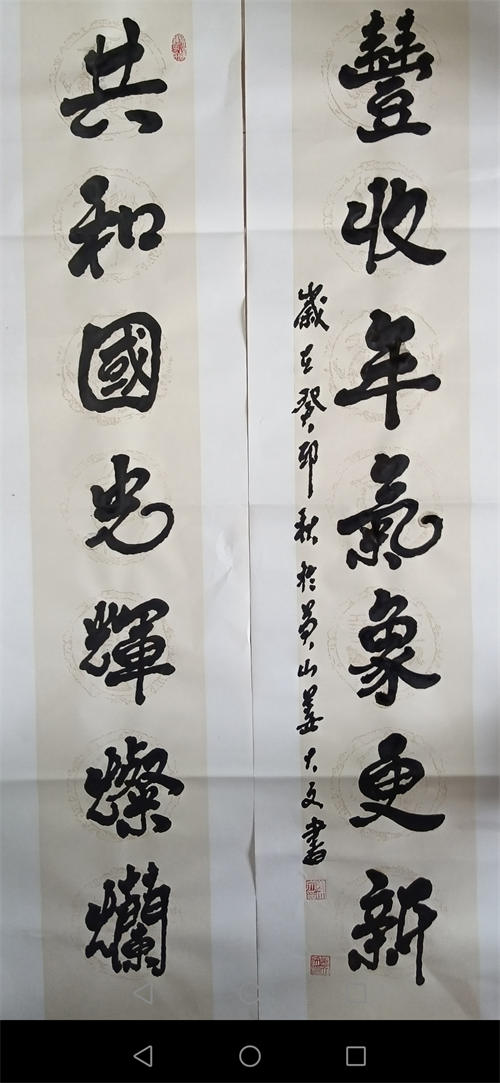 豐收年氣象更新
歲在癸卯秋於黃山姜大文書
共和國光輝燦爛